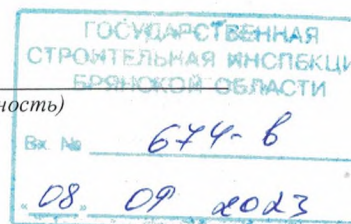 ГОСУДАРСТВЕННАЯ
СТРОИТЕЛЬНАЯ ИНСПЕКЦИ
БРЯНСКОЙ ОБЛАСТИ
ность)
Вх. № 674-в
"08" 09 2023